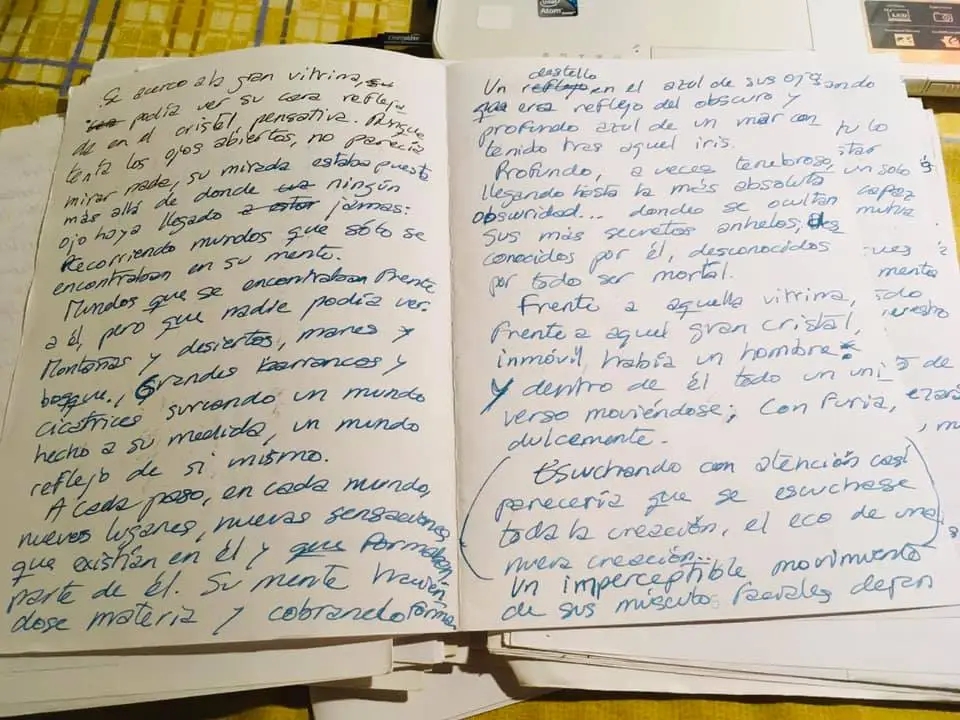 Se acerco a la gran vitrina, su
podía ver su cara refleja
da en el cristal, pensativa. Aunque
tenía los ojos abiertos, no parecía
mirar nada, su mirada estaba puesta
más allá de donde ningún
ojo haya llegado a estar jamas:
Recorriendo mundos que sólo se
encontraban en su mente.
Mundos que se encontraban frente
a él, pero que nadie podía ver.
Montañas y desiertos, mares y
bosque., Grandes barrancos y
cicatrices surcando un mundo
hecho a su medida, un mundo
reflejo de si mismo.
A cada paso, en cada mundo,
nuevos lugares, nuevas sensaciones
que existían en él y que formaban
parte de él. Su mente hacien
dose materia y cobrando forma
destello
Un reflejo en el azul de sus ojos
que era reflejo del obscuro y
profundo azul de un mar con
tenido tras aquel iris.
Profundo, a veces tenebroso,
llegando hasta la más absoluta
obscuridad... donde se ocultan
sus más secretos anhelos, des
conocidos por él, desconocidos
por todo ser mortal.
Frente a aquella vitrina,
frente a aquel gran cristal,
inmóvil, había un hombre
y dentro de él todo un uni
verso moviéndose; con furia,
dulcemente.
(Escuchando con atención casi
parecería que se escuchase
toda la creación, el eco de una
nueva creación...)
Un imperceptible movimiento
de sus músculos faciales dejan
ando
tu lo
star
un solo
capaz
mutua
mento
todo
de
intel
Atom